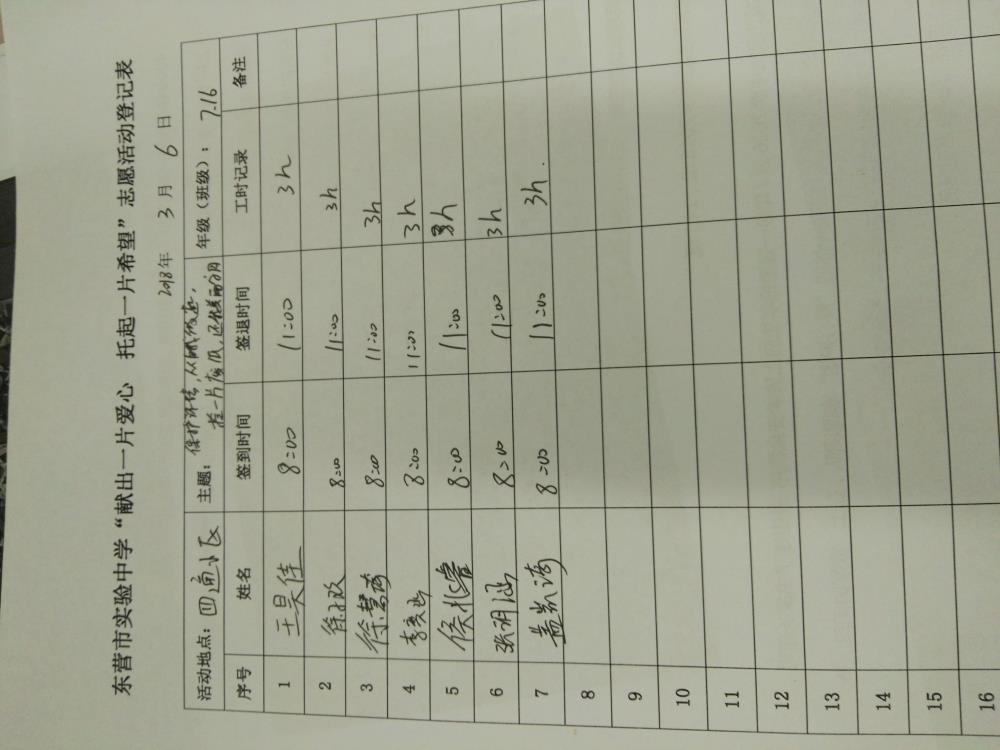 东营市实验中学“献出一片爱心 托起一片希望”志愿活动登记表
2018年 3月 6日
活动地点：四通小区 主题：保护环境，从 年级（班级）：7.16
捡一片 ，还
序号 姓名 签到时间 签退时间 工时记录 备注
1 王昊佳 8:00 11:00 3h
2 徐 8:00 11:00 3h
3 徐慧 8:00 11:00 3h
4 李 8:00 11:00 3h
5 侯 睿 8:00 11:00 3h
6 张明涵 8:00 11:00 3h
7 盖 8:00 11:00 3h.
8
9
10
11
12
13
14
15
16